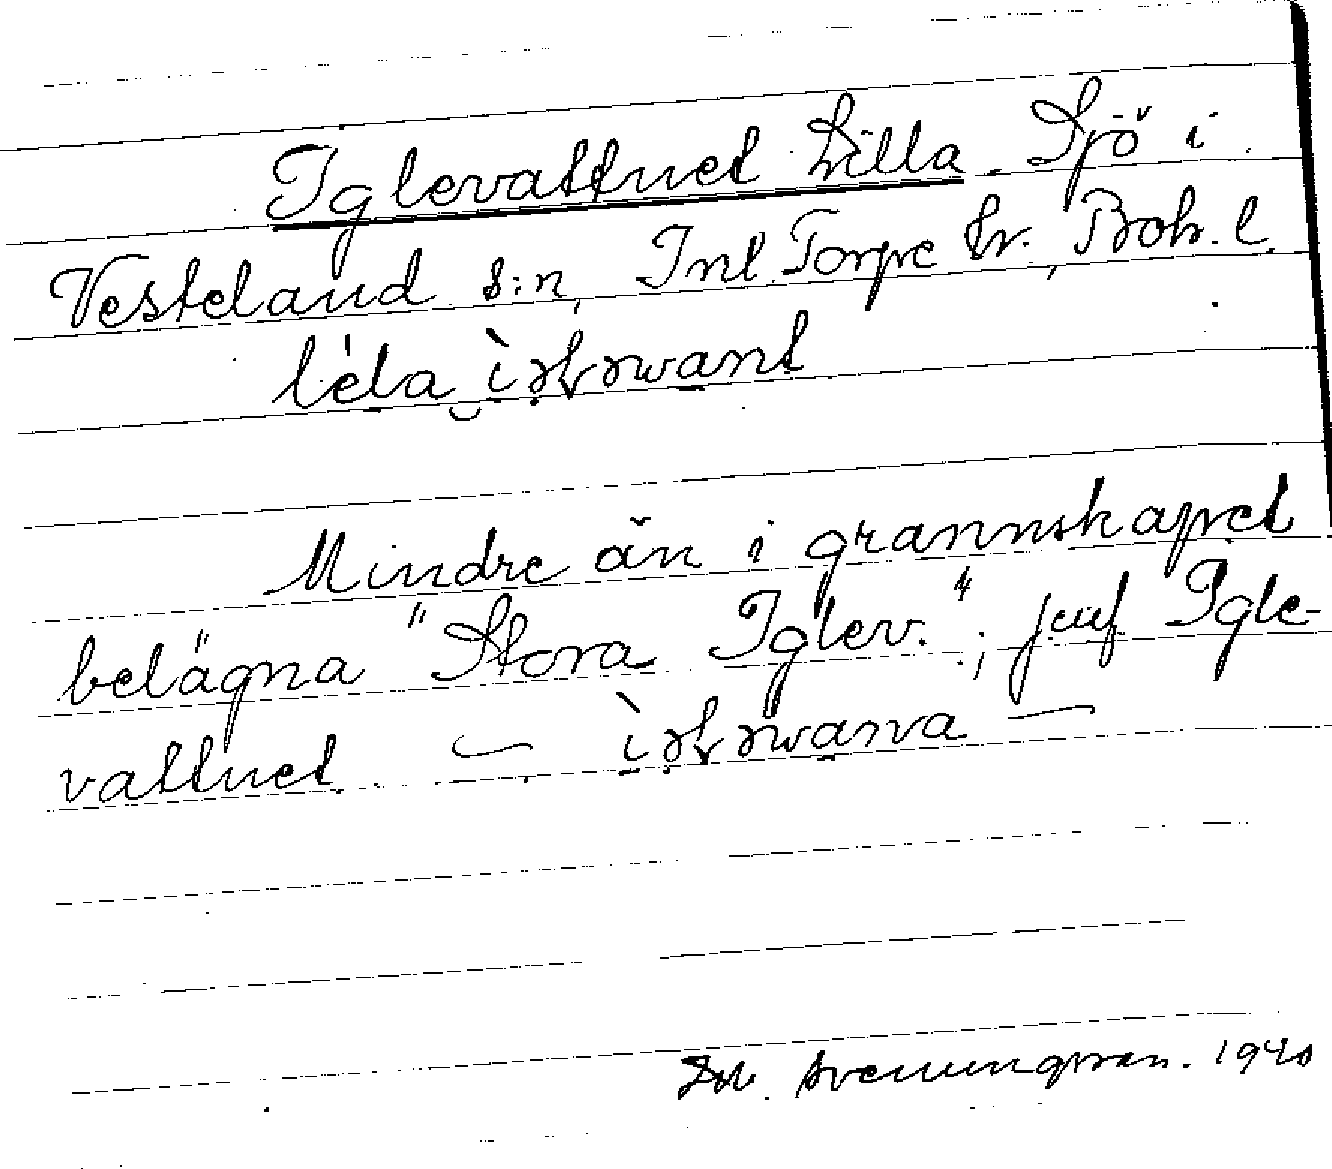 Iglevattnet Lilla. Sjö i
Vesteland s:n, Inl. Torpe hr., Boh. l.
Mindre än i grannskapet
belägna "Stora Iglev."; jmf Igle-
vattnet
Svenungsson. 1940